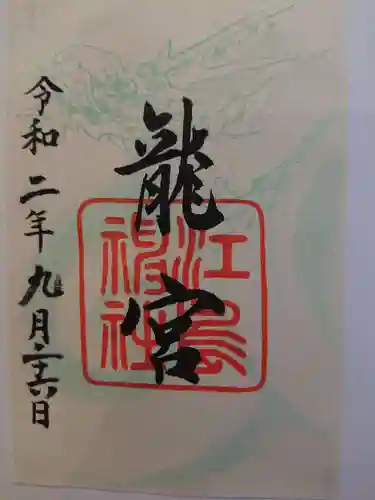 龍宮
江島
神社
令和二年九月二十六日